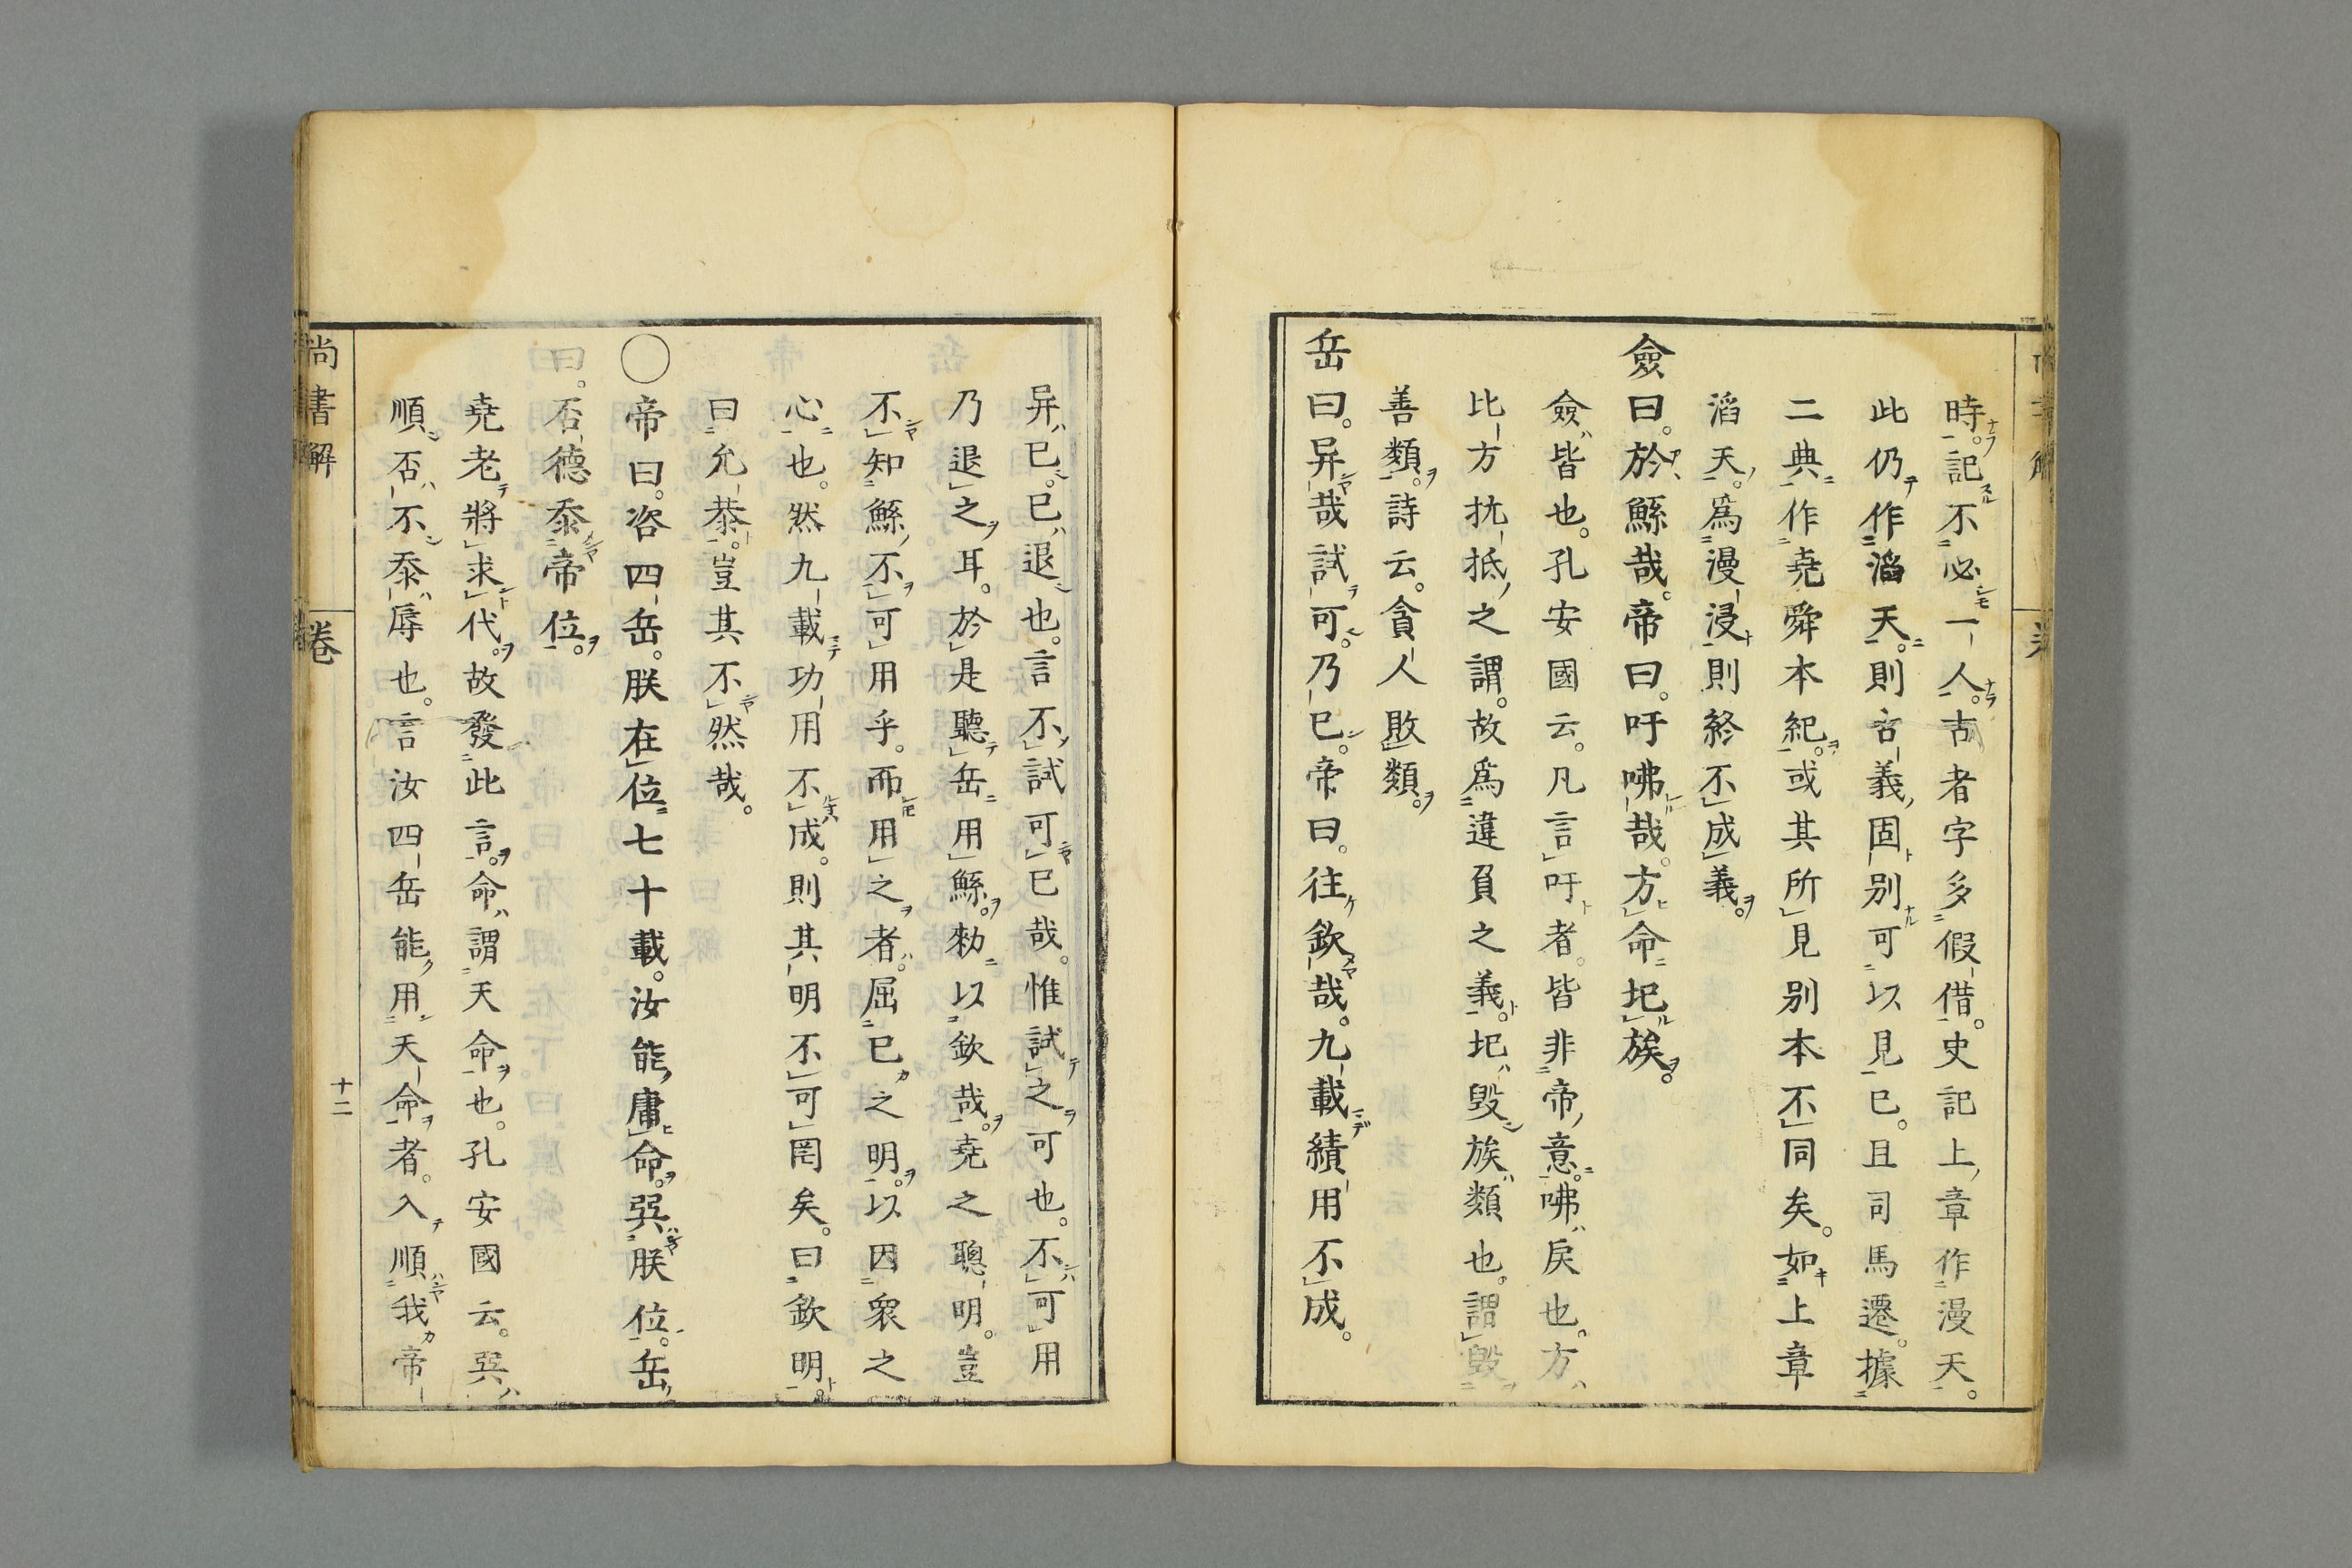 時。記不必一人。古者字多假借。史記上章作漫天。
此仍作滔天。則古義固別可以見已。且司馬遷。據
二典作堯舜本紀。或其所見別本不同矣。如上章
滔天。爲漫浸則終不成義。
僉曰。於鯀哉。帝曰。吁咈哉。方命圯族。
僉皆也。孔安國云。凡言吁者。皆非帝意。咈戾也。方
比方抗抵之謂。故爲違負之義。圯毀族類也。謂毀
善類。詩云。貪人敗類。
岳曰。异哉試可。乃已。帝曰。往欽哉。九載績用不成。
异已。已退也。言不試可已哉。惟試之可也。不可用
乃退之耳。於是聽岳用鯀。勑以欽哉。堯之聰明。豈
不知鯀不可用乎。而用之者。屈已之明。以因衆之
心也。然九載功用不成。則其明不可罔矣。曰欽明
曰允恭。豈其不然哉。
○帝曰。咨四岳。朕在位七十載。汝能庸命。巽朕位。岳
曰。否德忝帝位。
堯老將求代。故發此言。命謂天命也。孔安國云。巽
順。否不忝辱也。言汝四岳能用天命者。入順我帝
尚書解
卷
十二